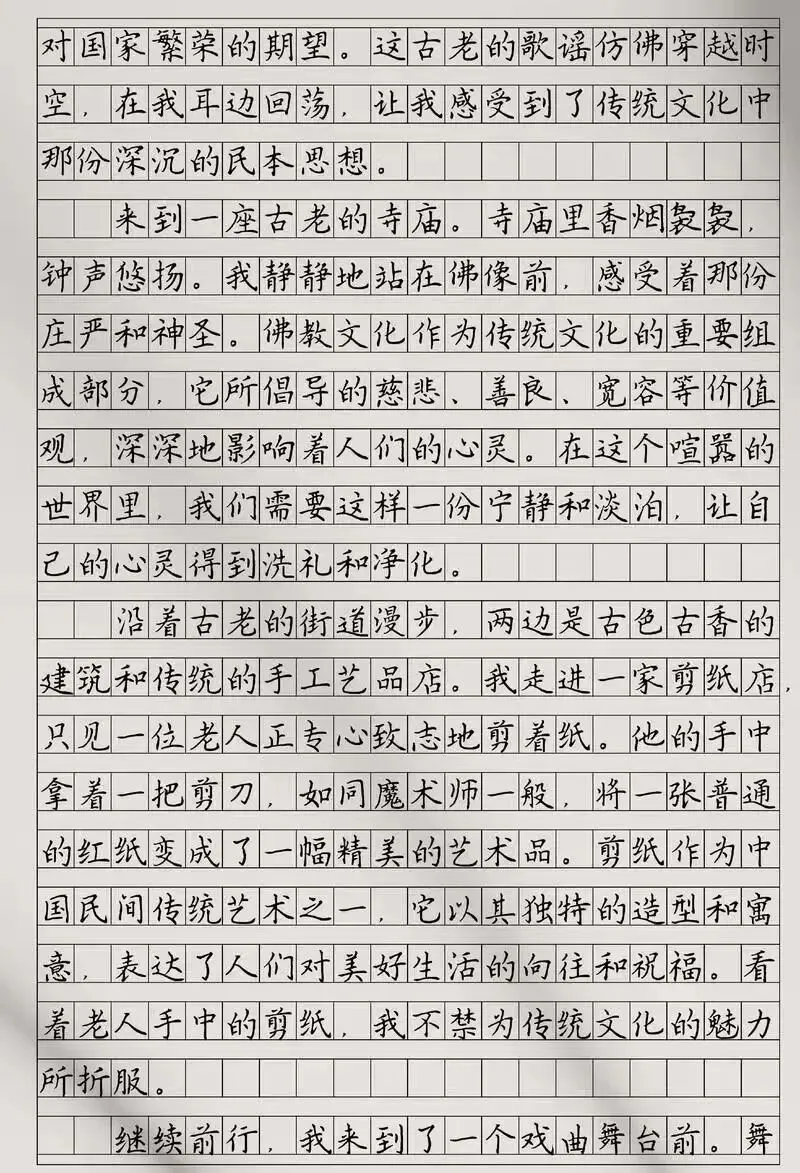 对国家繁荣的期望。这古老的歌谣仿佛穿越时
空，在我耳边回荡，让我感受到了传统文化中
那份深沉的民本思想。
来到一座古老的寺庙。寺庙里香烟袅袅，
钟声悠扬。我静静地站在佛像前，感受着那份
庄严和神圣。佛教文化作为传统文化的重要组
成部分，它所倡导的慈悲、善良、宽容等价值
观，深深地影响着人们的心灵。在这个喧嚣的
世界里，我们需要这样一份宁静和淡泊，让自
己的心灵得到洗礼和净化。
沿着古老的街道漫步，两边是古色古香的
建筑和传统的手工艺品店。我走进一家剪纸店，
只见一位老人正专心致志地剪着纸。他的手中
拿着一把剪刀，如同魔术师一般，将一张普通
的红纸变成了一幅精美的艺术品。剪纸作为中
国民间传统艺术之一，它以其独特的造型和寓
意，表达了人们对美好生活的向往和祝福。看
着老人手中的剪纸，我不禁为传统文化的魅力
所折服。
继续前行，我来到了一个戏曲舞台前。舞